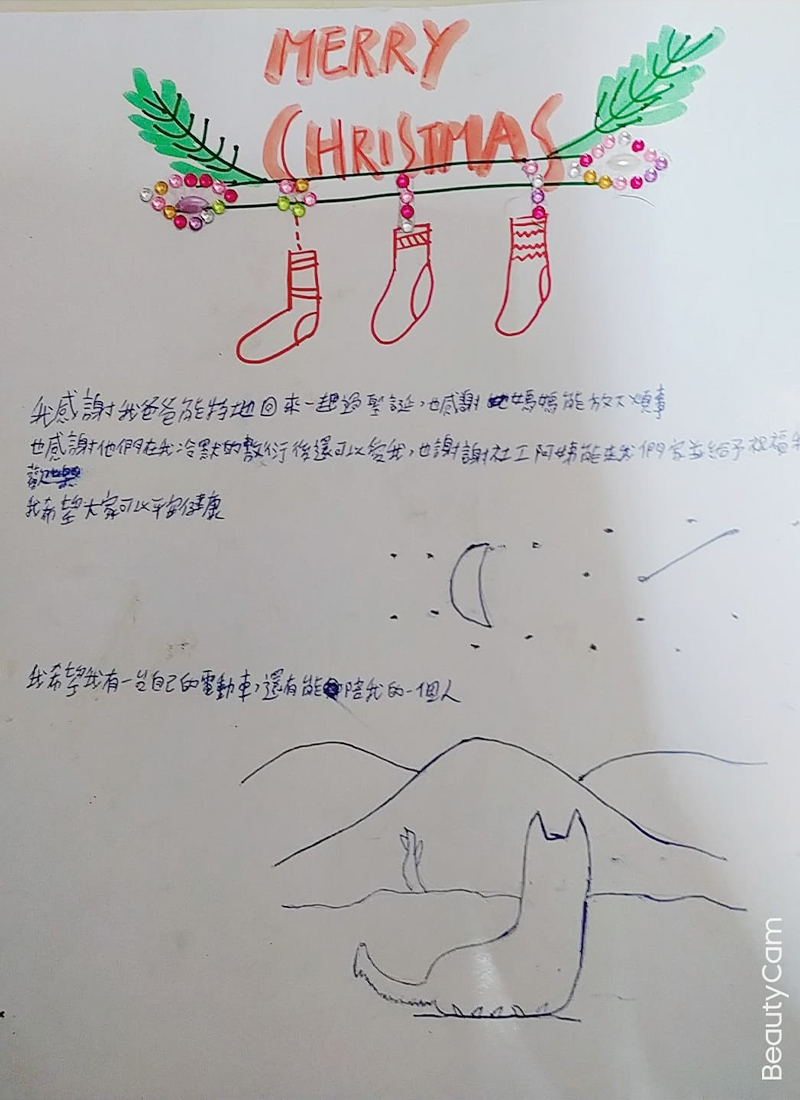 MERRY
CHRISTMAS
我感謝我爸爸能特地回來一起過聖誕,也感謝媽媽能放下煩事
也感謝他們在我冷默的敷衍後還可以愛我,也謝謝社工阿姨能來我們家並給予祝福和
歡樂
我希望大家可以平安健康
我希望我有一台自己的電動車,還有能陪我的一個人
BeautyCam